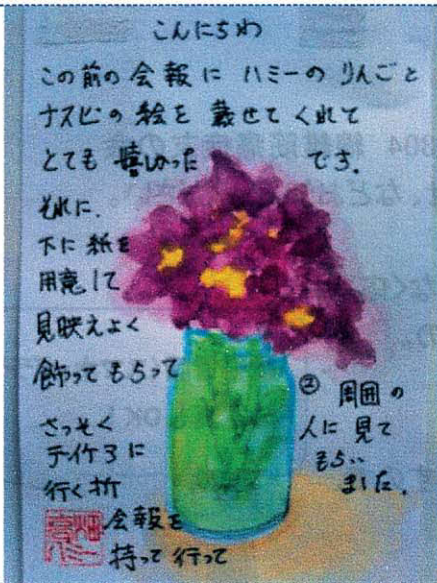 こんにちわ
この前の会報に ハミーの りんごと
ナスビの絵を 載せてくれて
とても 嬉しかった です.
それに.
下に 紙を
用意して
見映えよく
飾ってもらって
さっそく
デイケアに
行く折
会報を
持って行って
② 周囲の
人に見て
もらい
ました.